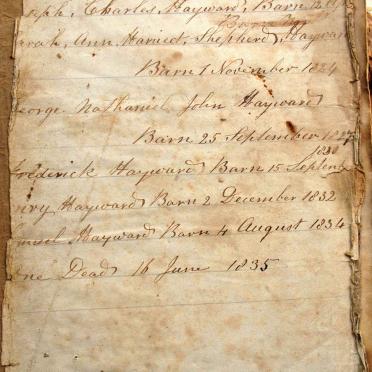 seph, Charles, Hayward, Barn 12
Barn
arah, Ann, Harriet, Shepherd, Hayward
Barn 1 November 1824
George Nathaniel John Hayward
Barn 25 September 1827
1830
Frederick Hayward Barn 15 Septemb
enry Hayward Barn 2 December 1832
amuel Hayward Barn 4 August 1834
one Dead 16 June 1835